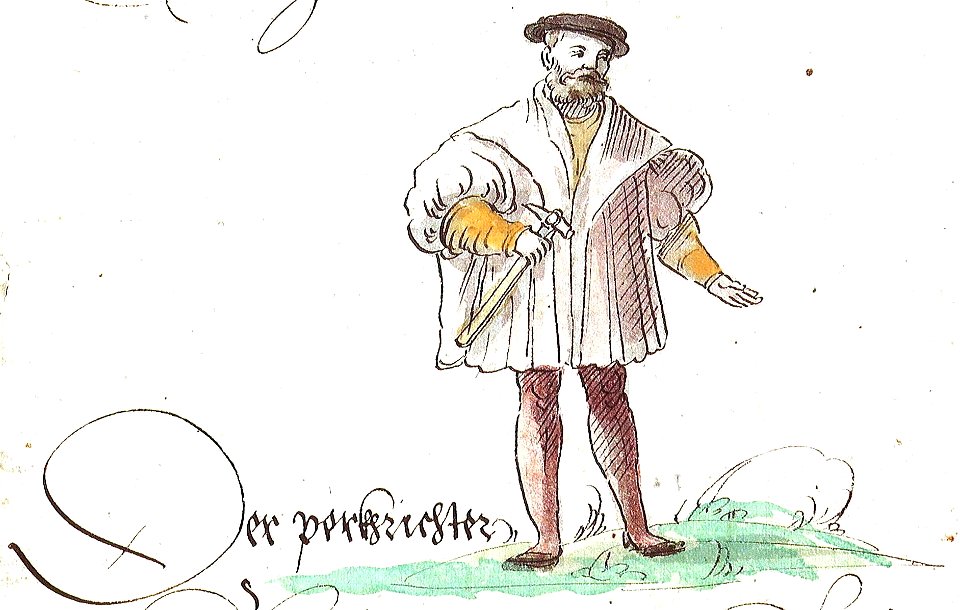 Der perkhrichter